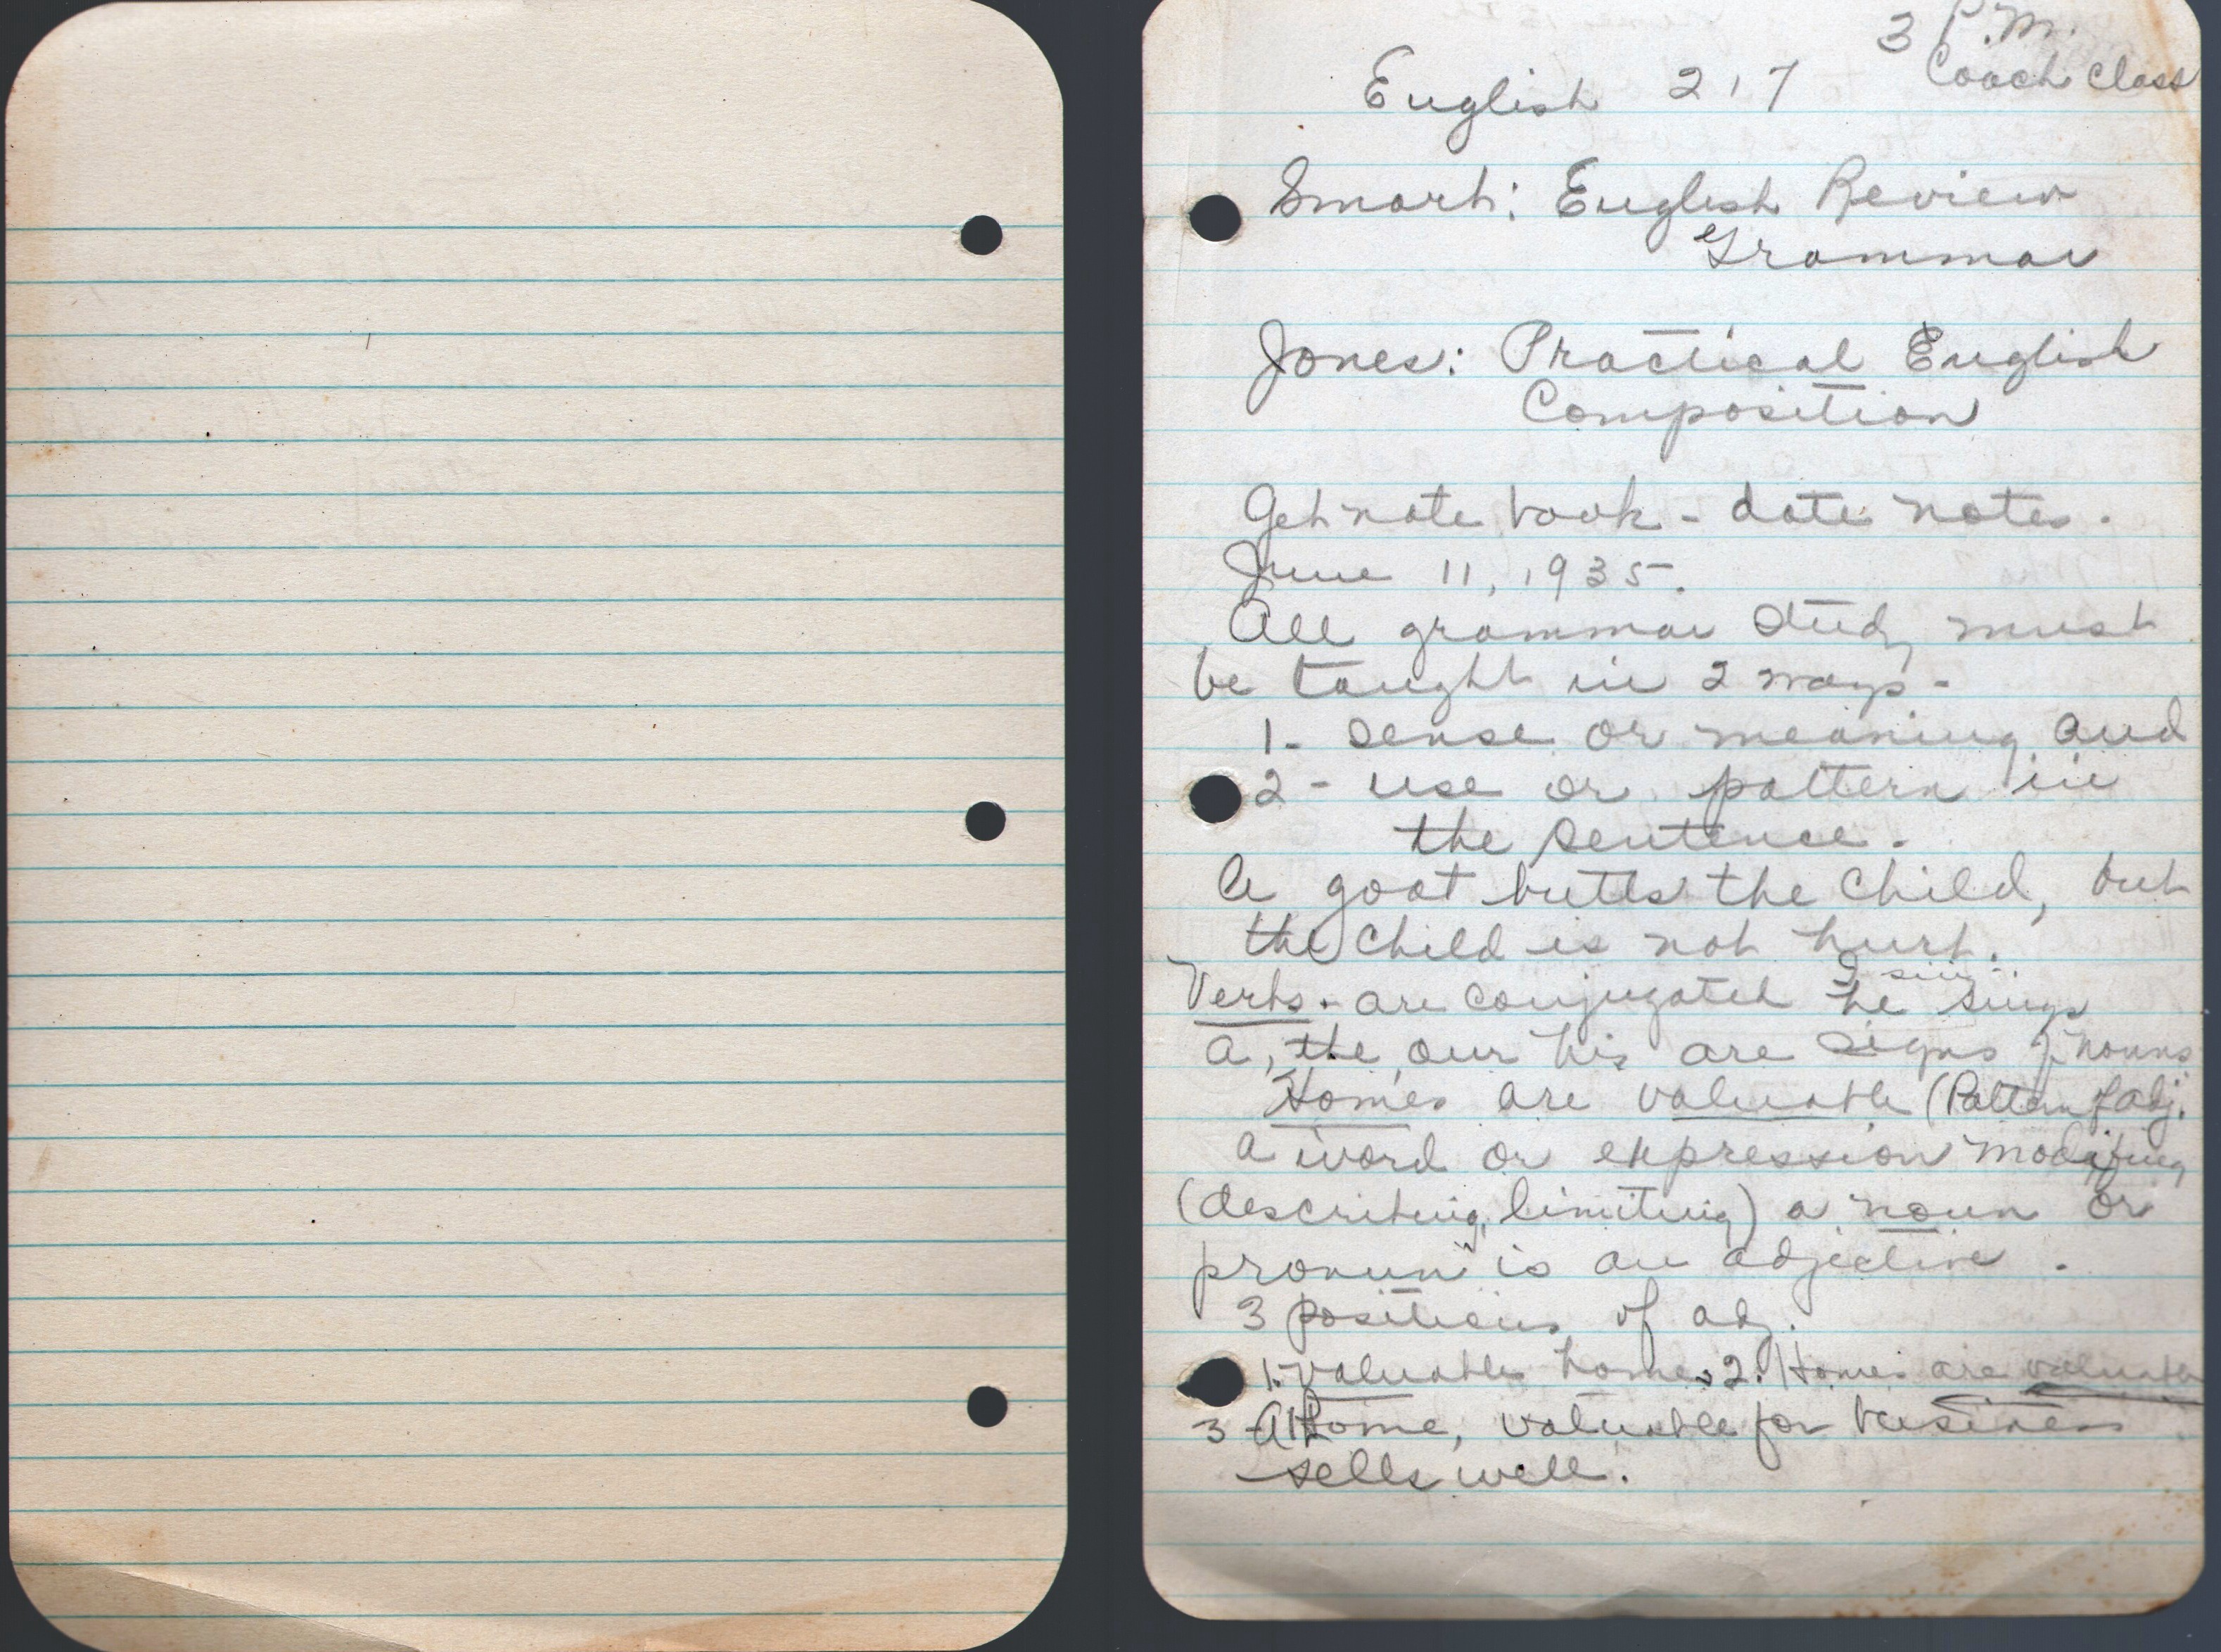 3 P.M.
Coach Class
English 217
Smart: English Review
Grammar
Jones: Practical English
Composition
Get note book - date notes.
June 11, 1935.
All grammar study must
be taught in 2 ways -
1- sense or meaning and
2 - use or pattern in
the sentence.
A goat butts the child, but
the child is not hurt.
I sing
Verbs - are conjugated he sings
a, the, our his are signs of nouns
Homes are valuable (Pattern of adj.
a word or expression modifying
(describing, limiting) a noun or
pronun is an adjective.
3 positions of adj.
1. Valuable homes 2. Homes are valuable
3 - A Home, valuable for business
sells well.